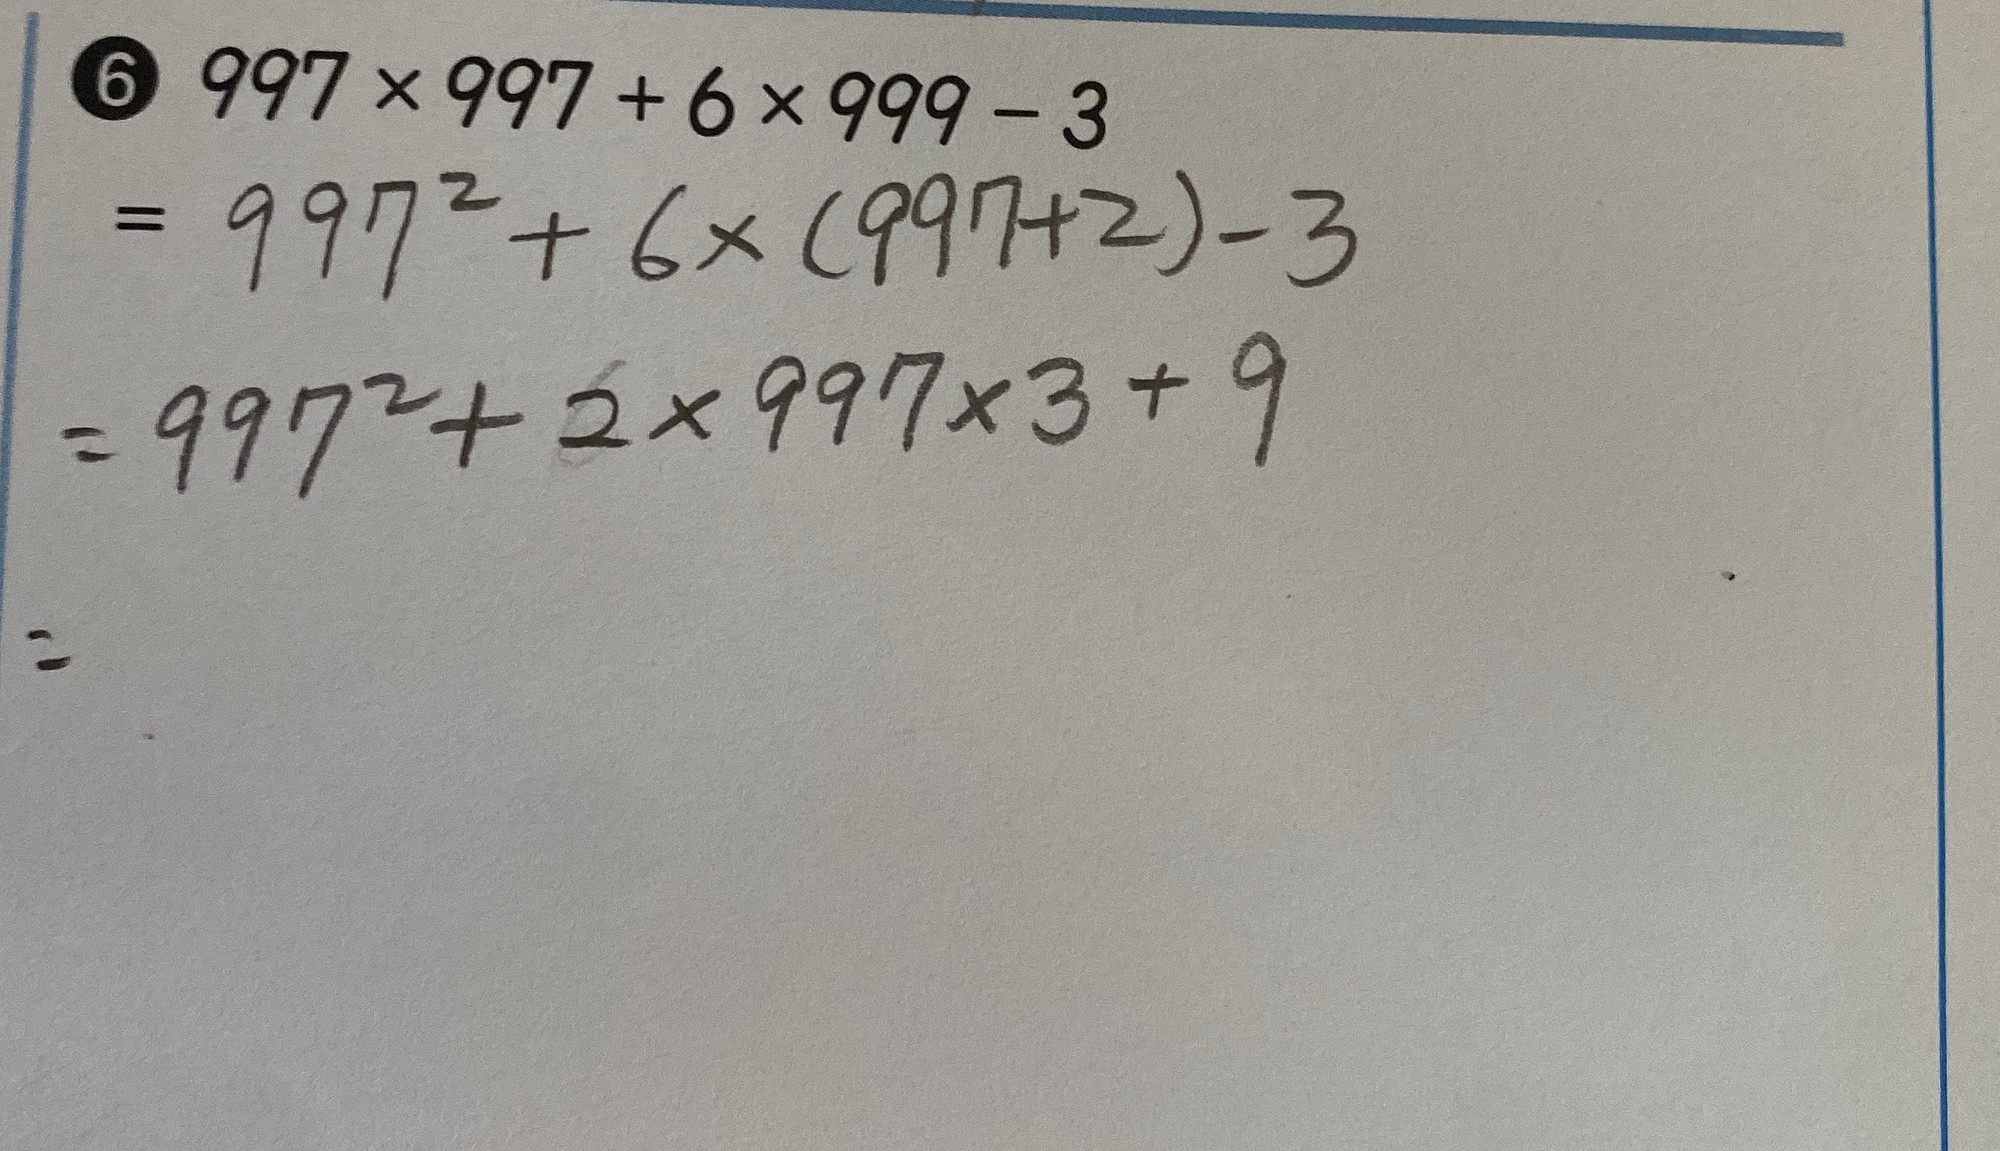 ❻ 997 × 997 + 6 × 999 − 3
= 997² + 6 × (997+2) − 3
= 997² + 2 × 997 × 3 + 9
=